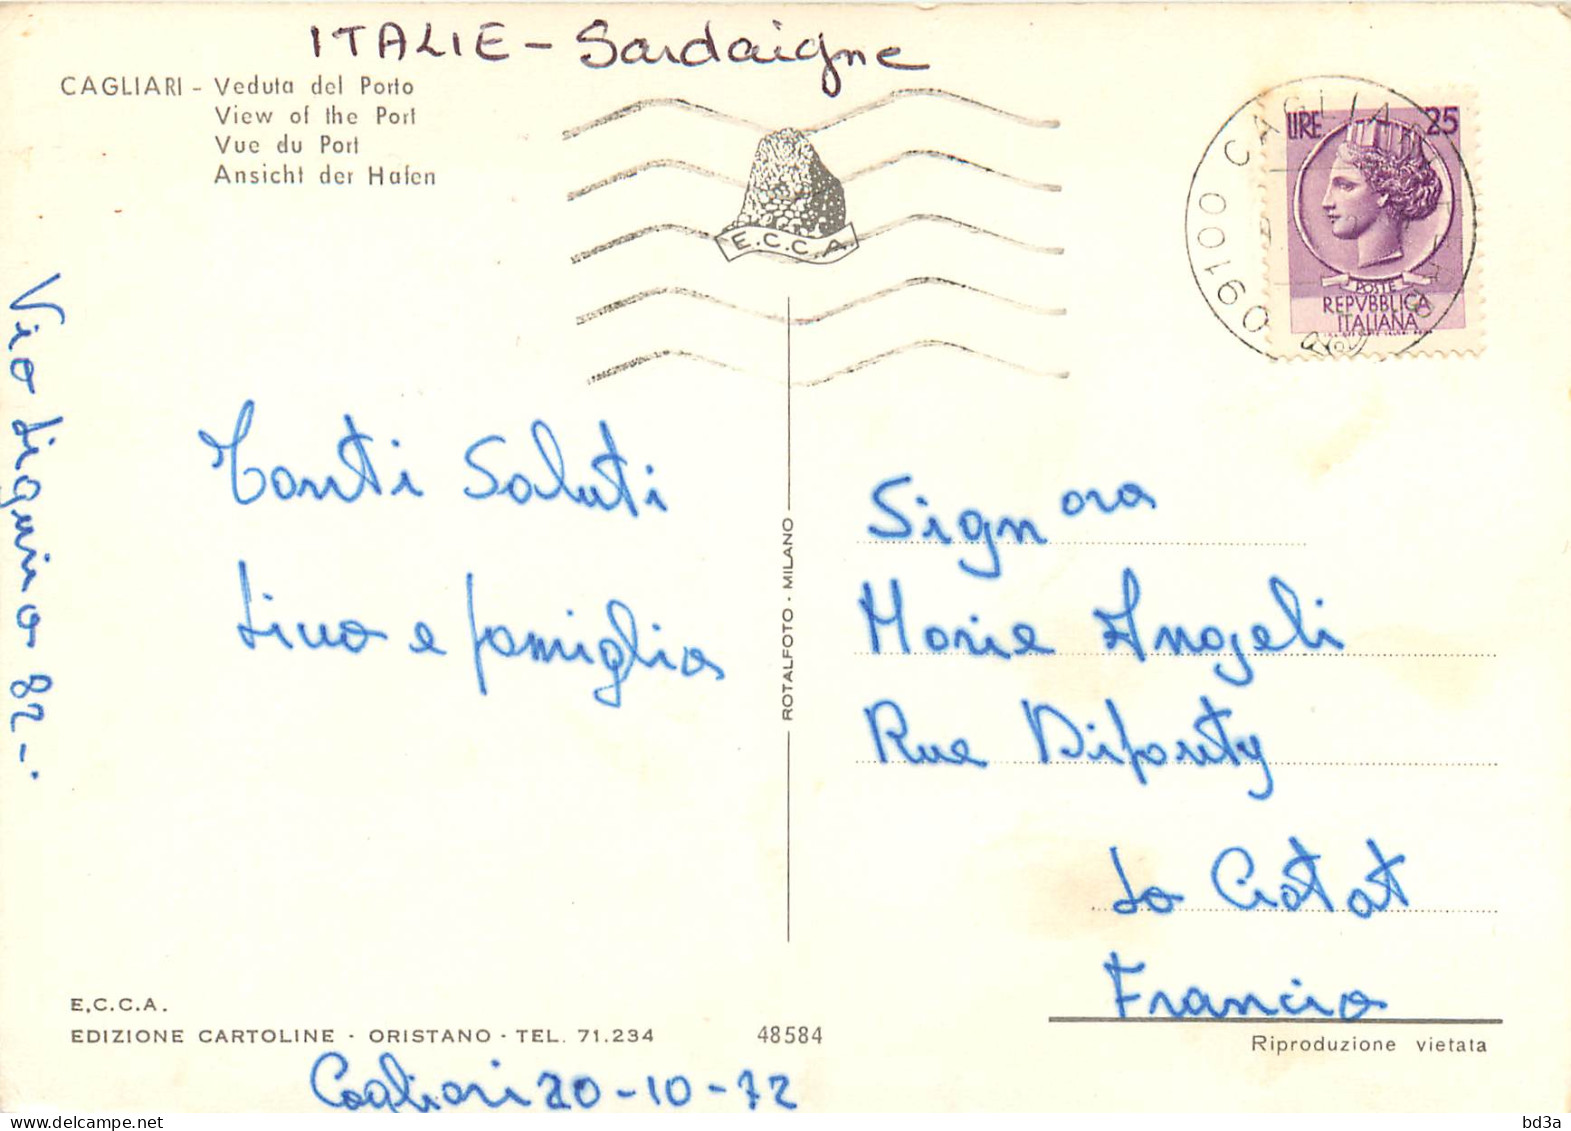 ITALIE - Sardaigne
CAGLIARI - Veduta del Porto
View of the Port
Vue du Port
Ansicht der Hafen
E.C.C.A
LIRE 25
POSTE
REPVBBLICA
ITALIANA
09100 CAGLIARI
Tanti Saluti
Lino e famiglia
Via Liguria 82-.
ROTALFOTO - MILANO
Signora
Marie Angeli
Rue
La Ciotat
Francia
E.C.C.A.
EDIZIONE CARTOLINE - ORISTANO - TEL. 71.234
48584
Riproduzione vietata
Cagliari 20-10-72
bd3a